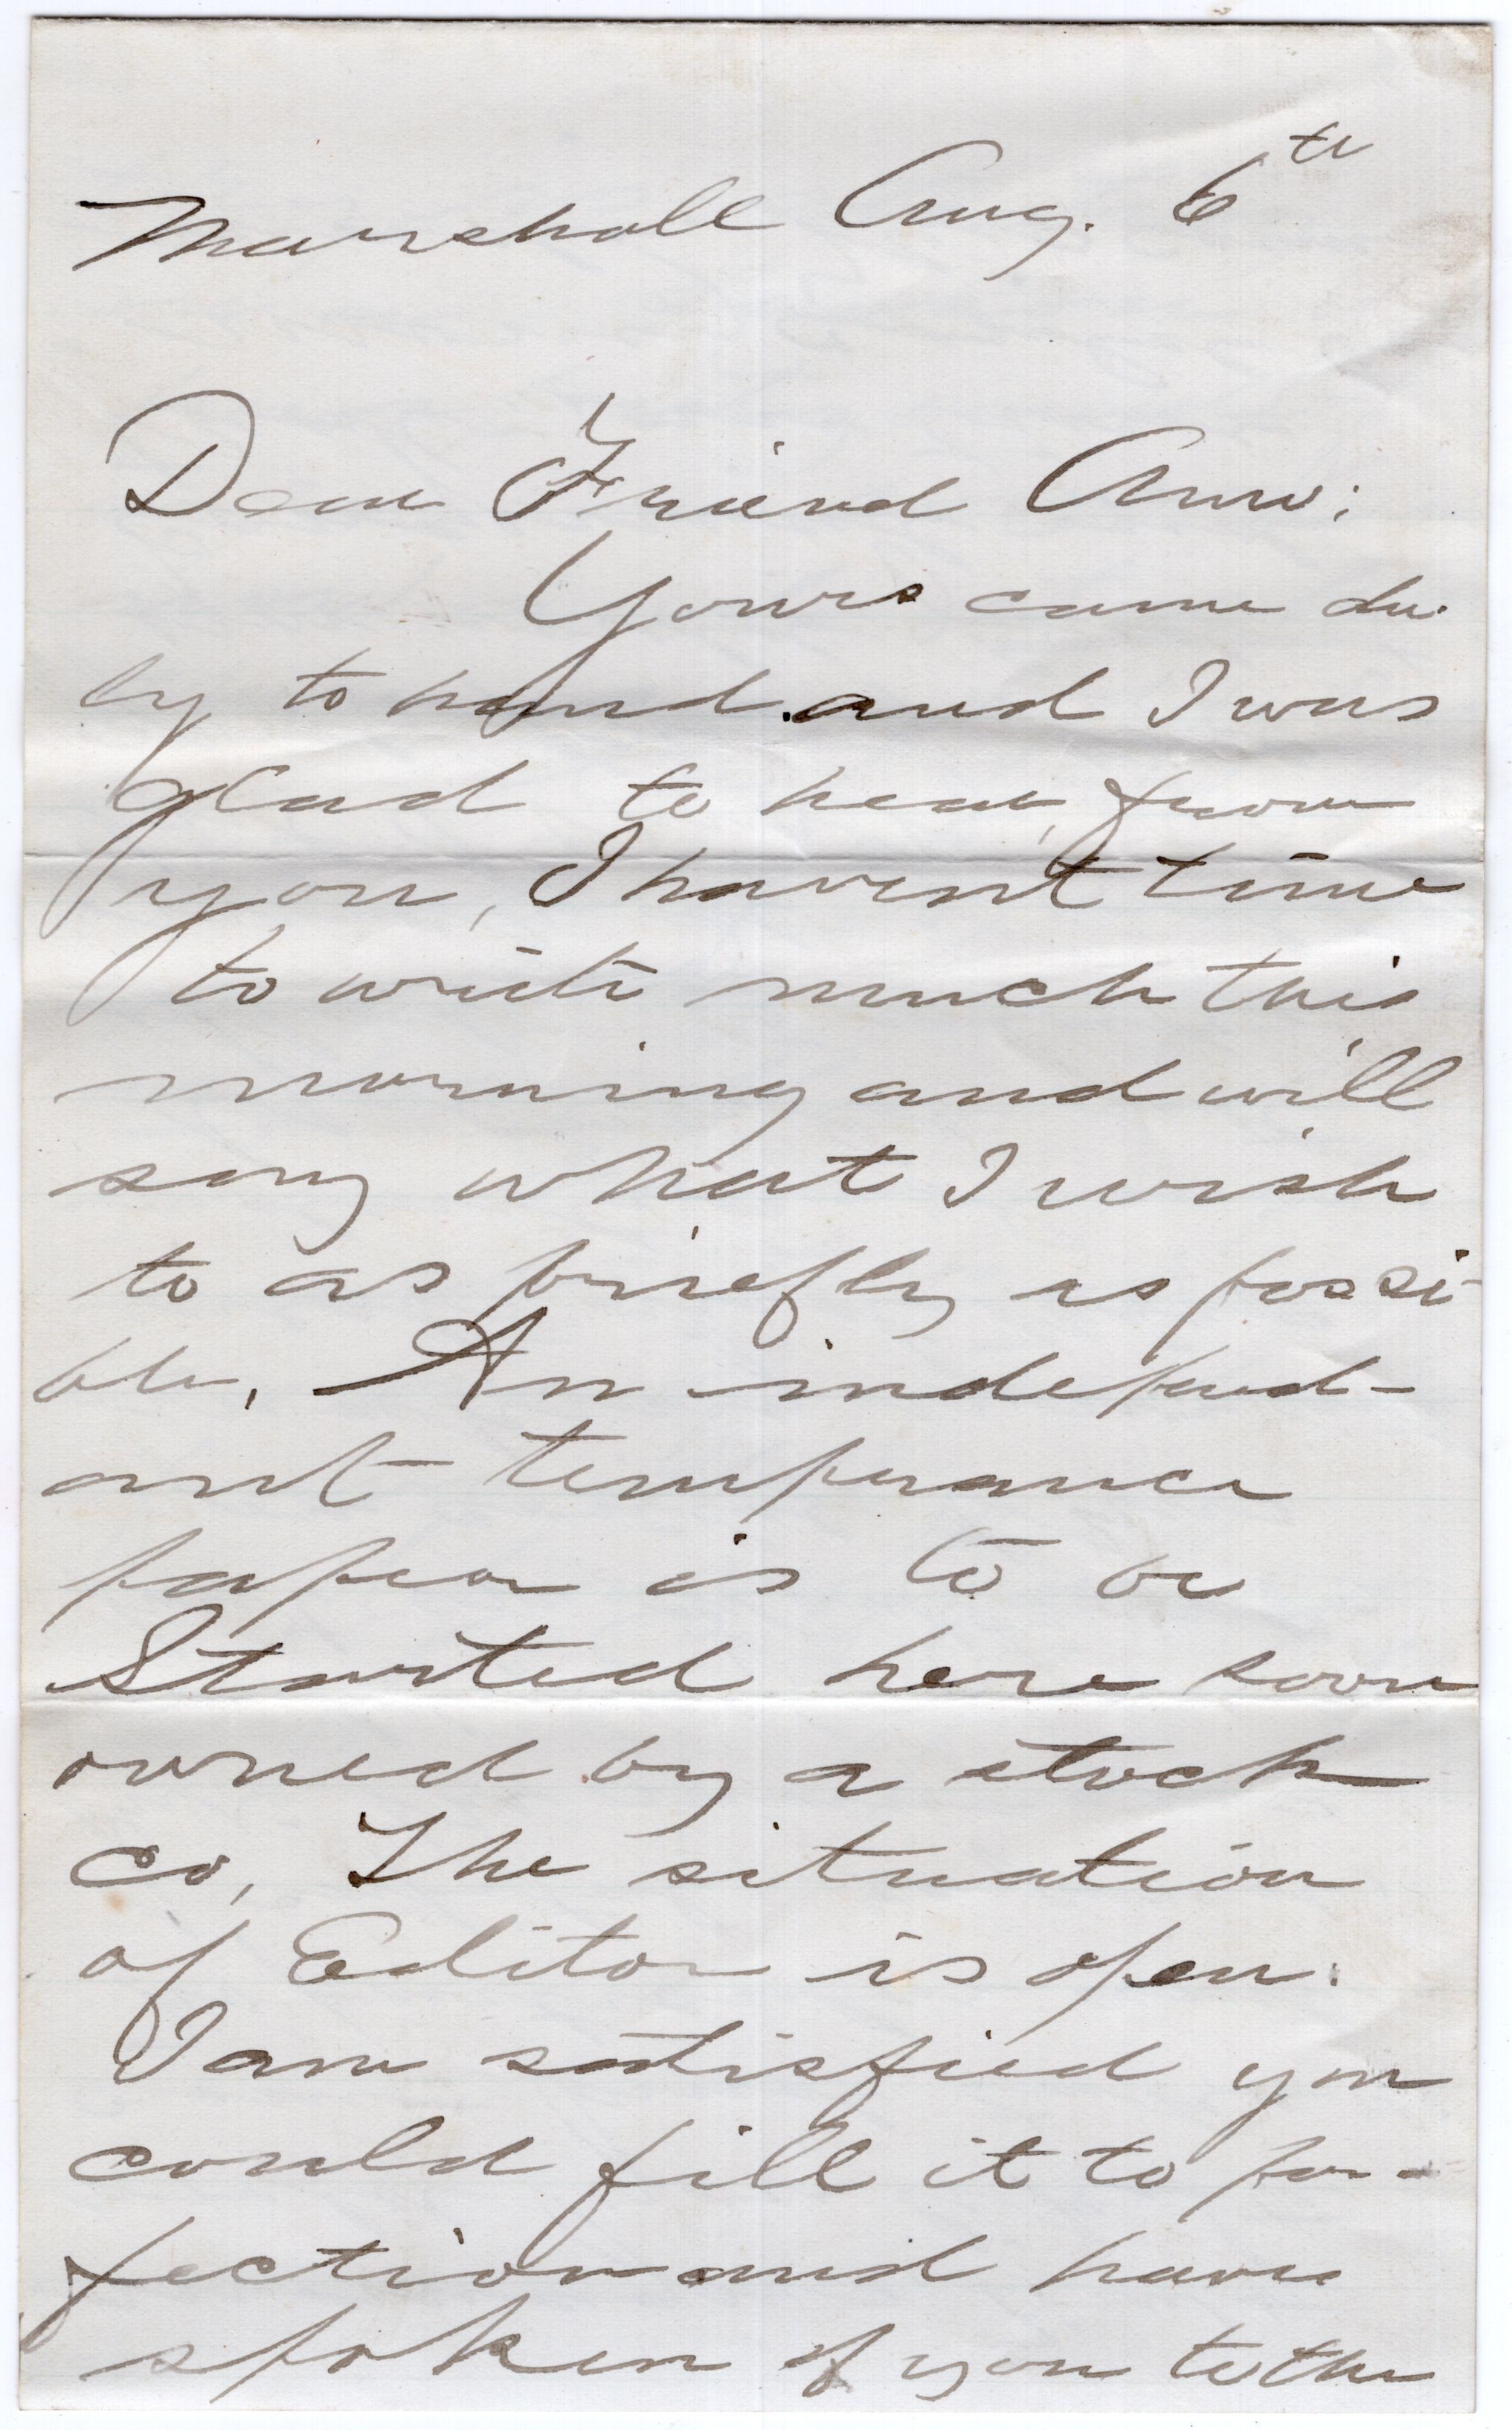 Marshall Aug. 6th
Dear Friend Ann;
Yours came du-
ly to hand and I was
glad to hear from
you, I havent time
to write much this
morning and will
say what I wish
to as briefly as possi-
ble, An independ-
ant temperance
paper is to be
Started here soon
owned by a stock
co, The situation
of Editor is open.
I am satisfied you
could fill it to per-
fection and have
spoken of you to the